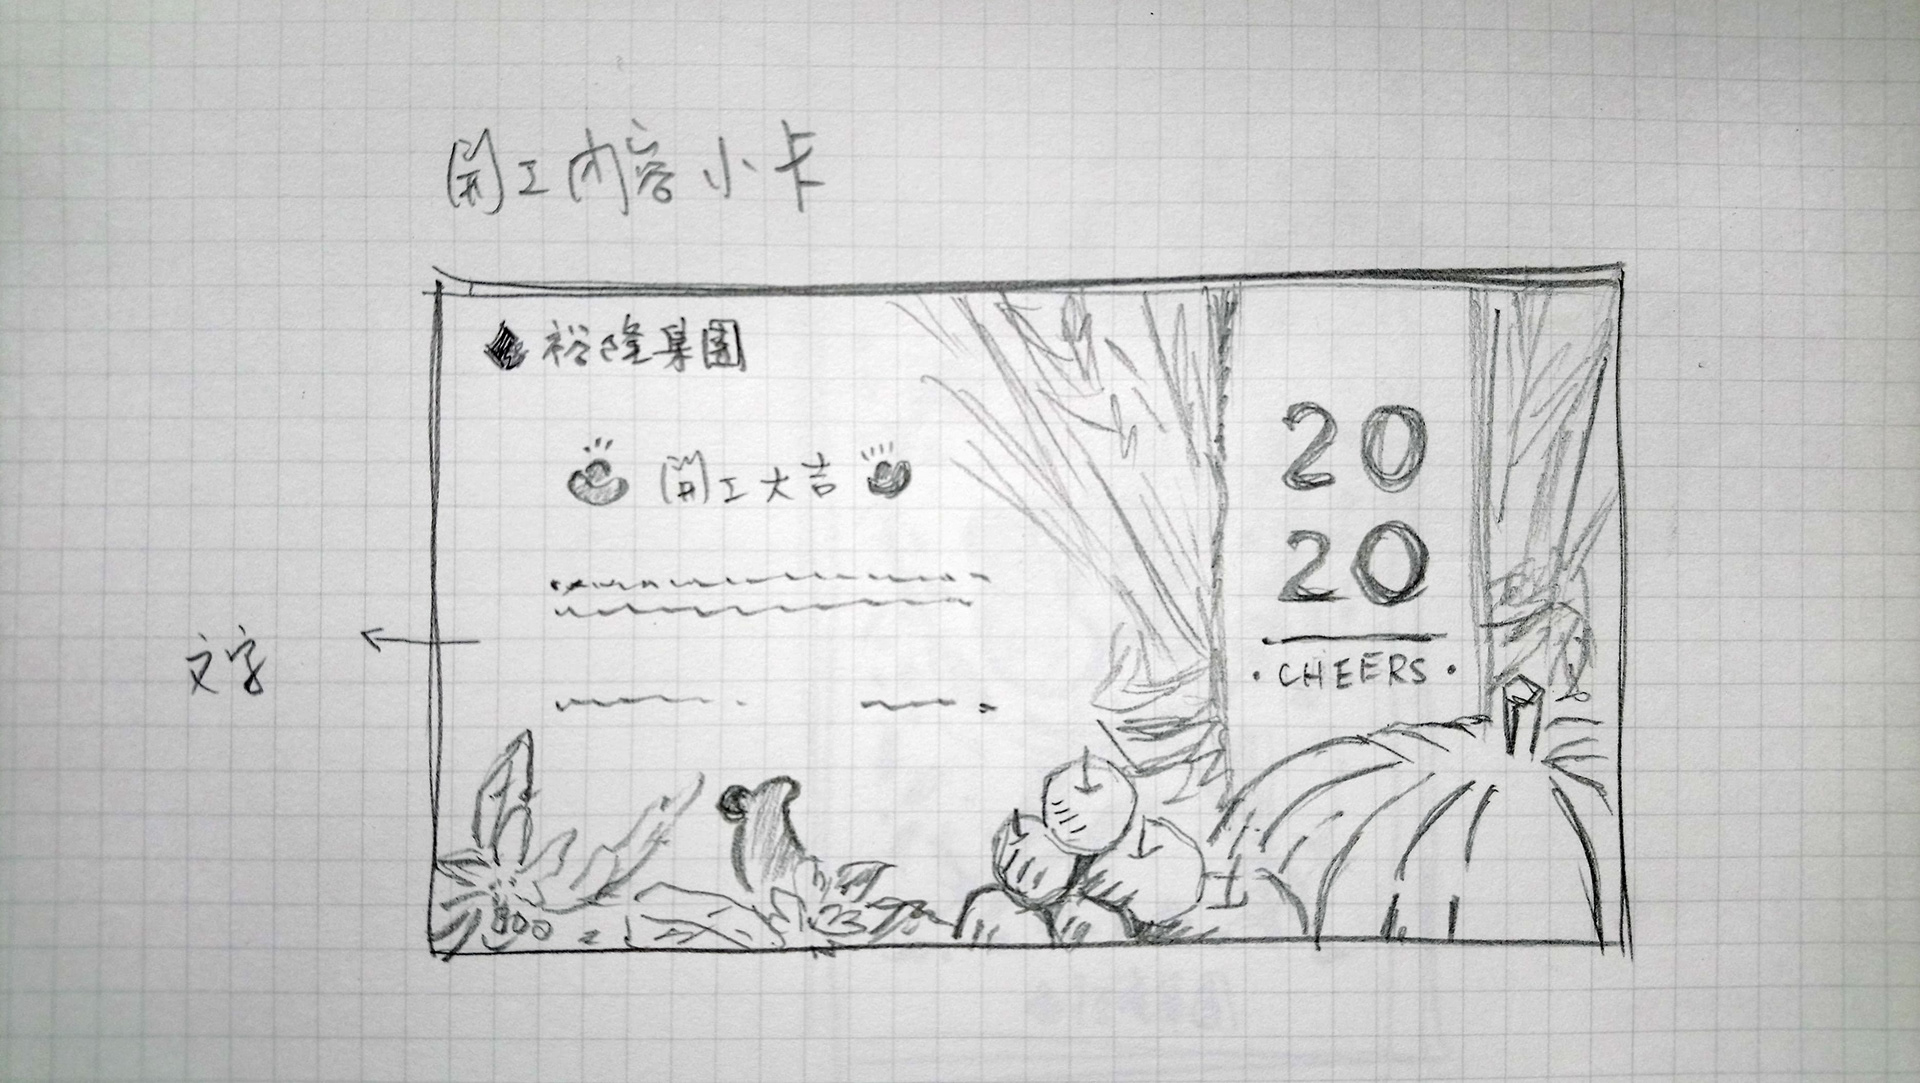 開工內容小卡
裕隆集團
開工大吉
20
20
· CHEERS ·
文字